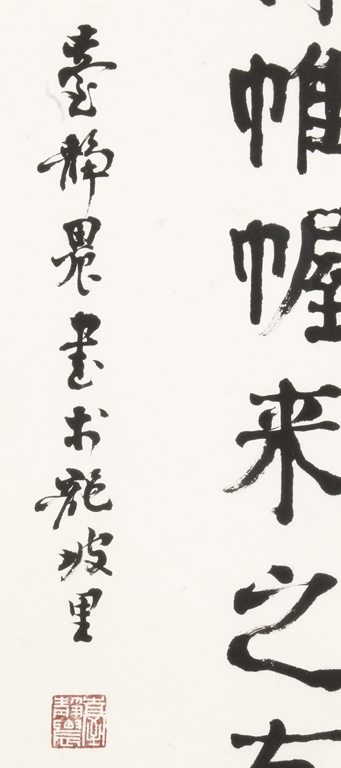 帷幄来之
臺静農書于龍坡里
臺靜農